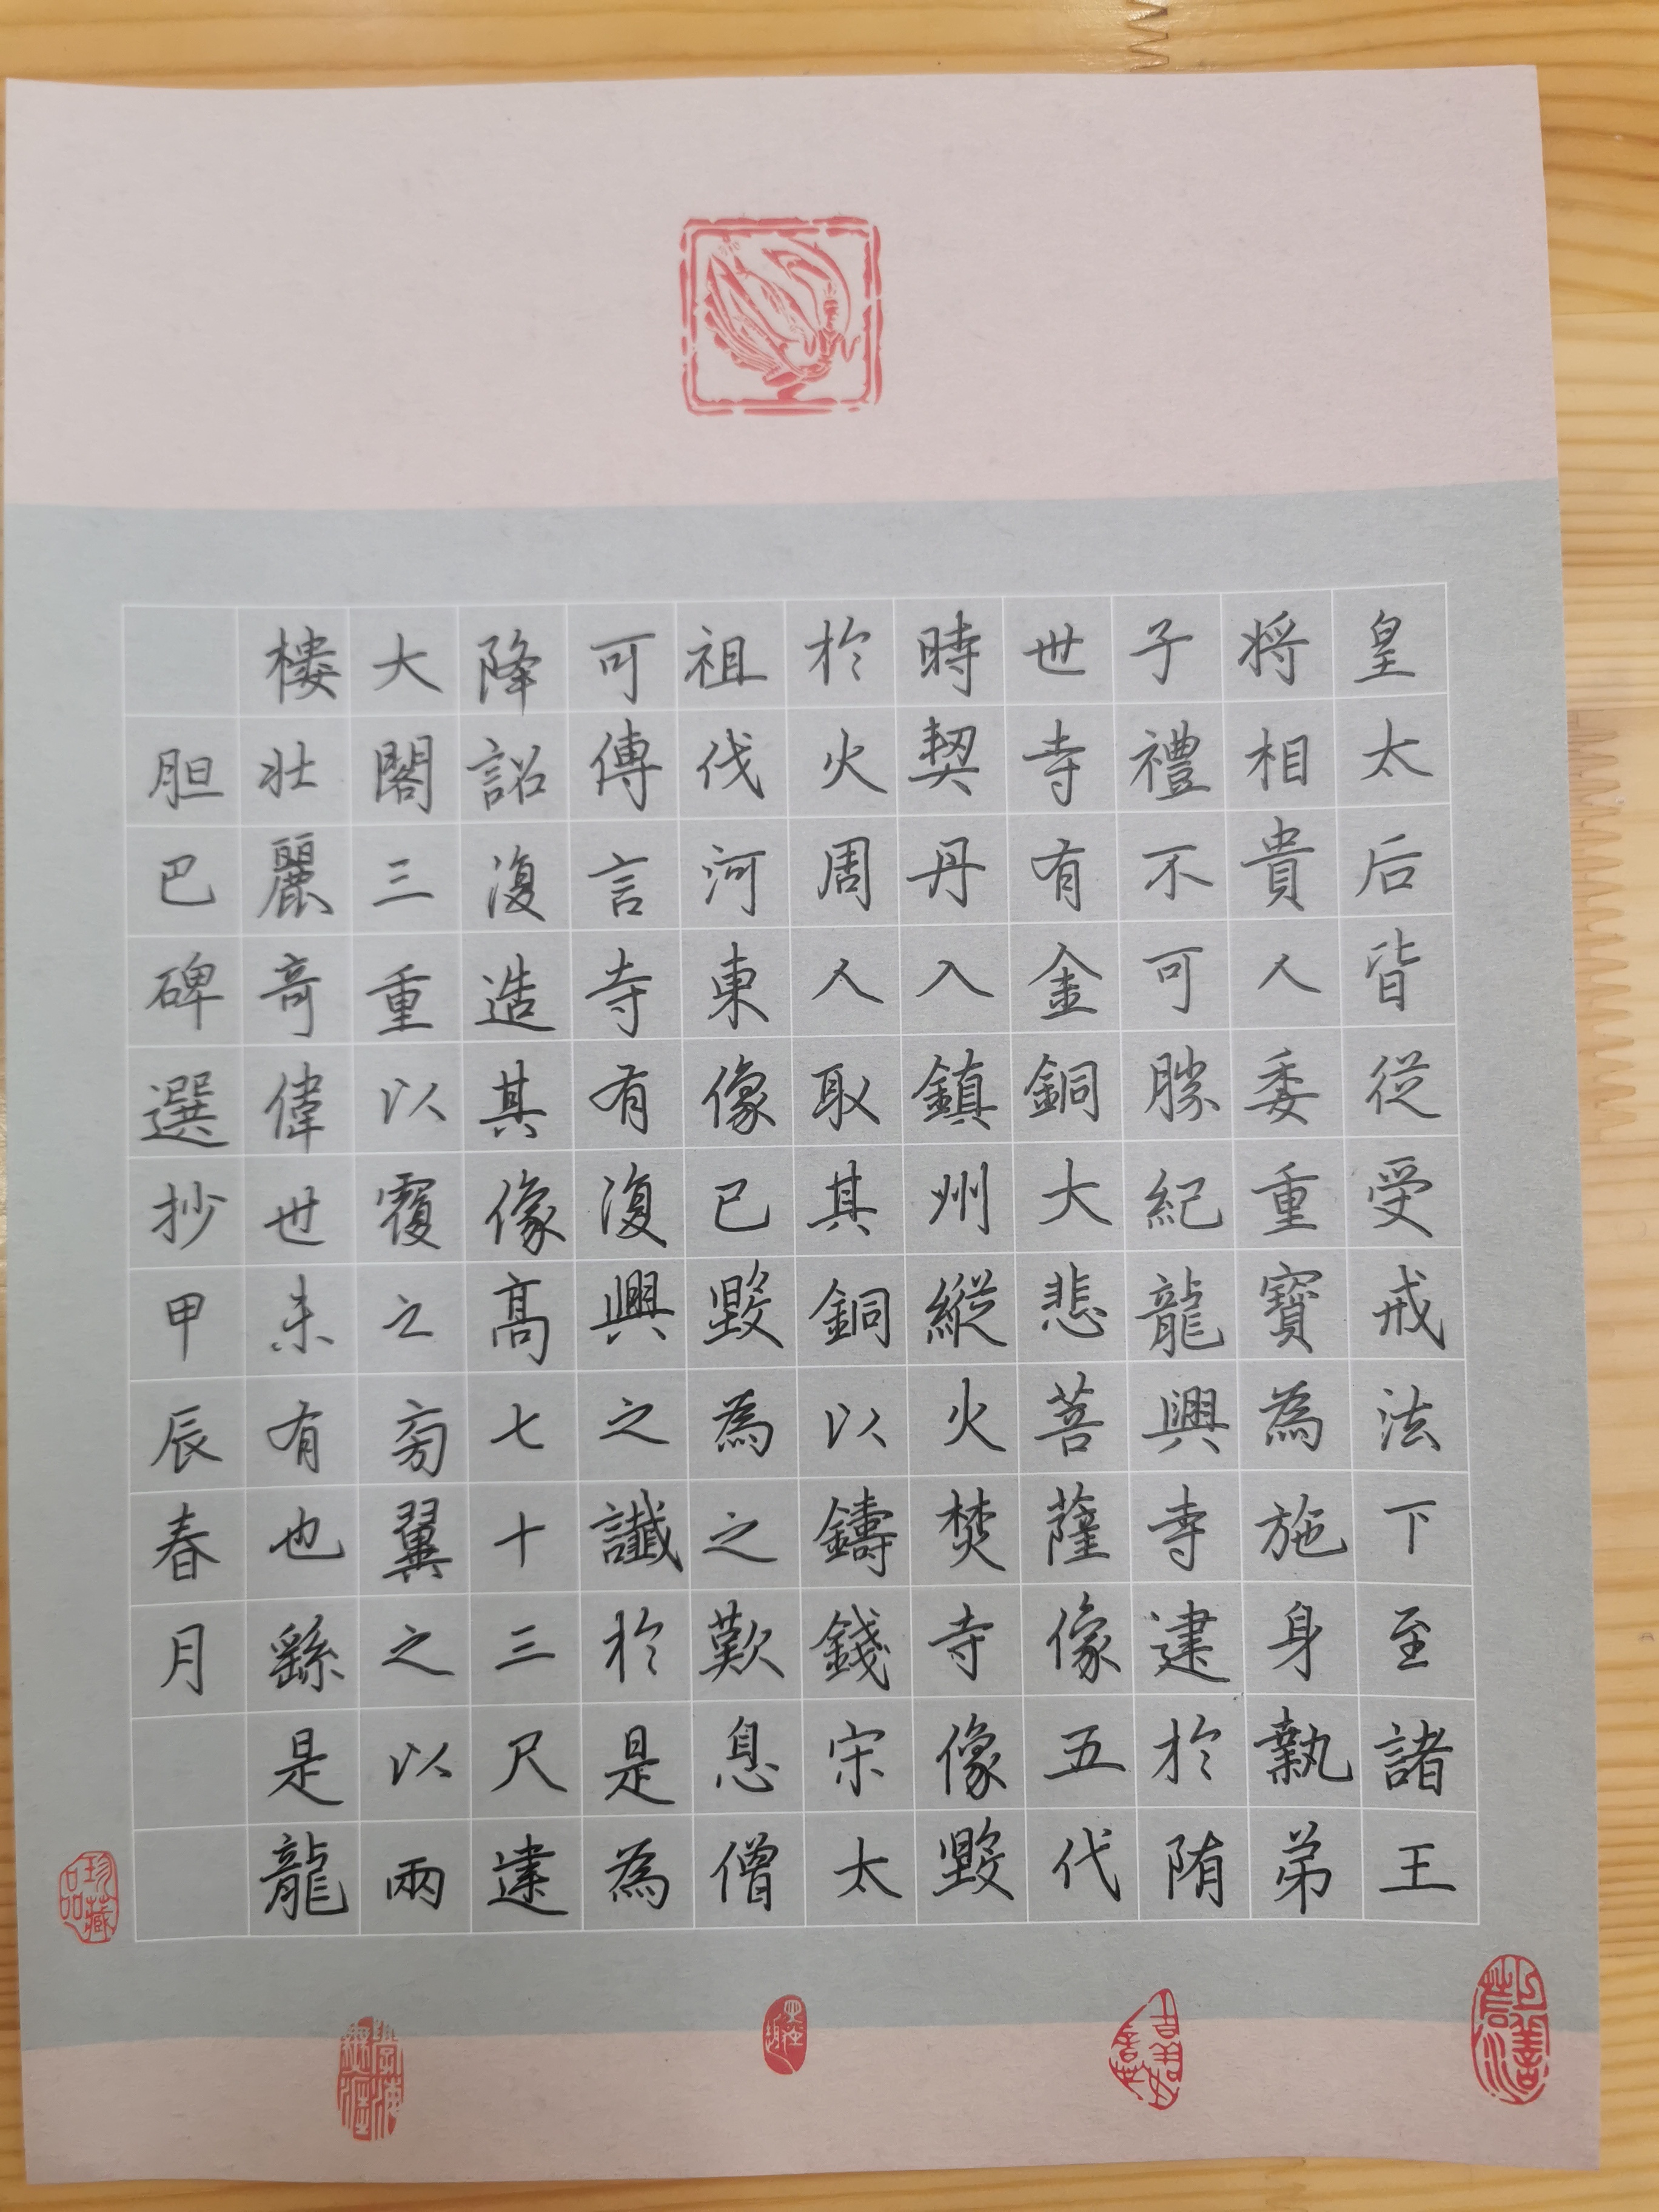 皇太后皆從受戒法下至諸王
将相貴人委重寶為施身執弟
子禮不可勝紀龍興寺建於隋
世寺有金銅大悲菩薩像五代
時契丹入鎮州縱火焚寺像毀
於火周人取其銅以鑄錢宋太
祖伐河東像已毀為之歎息僧
可傳言寺有復興之讖於是為
降詔復造其像高七十三尺建
大閣三重以覆之旁翼之以兩
樓壯麗奇偉世未有也繇是龍
胆巴碑選抄甲辰春月
珍藏品